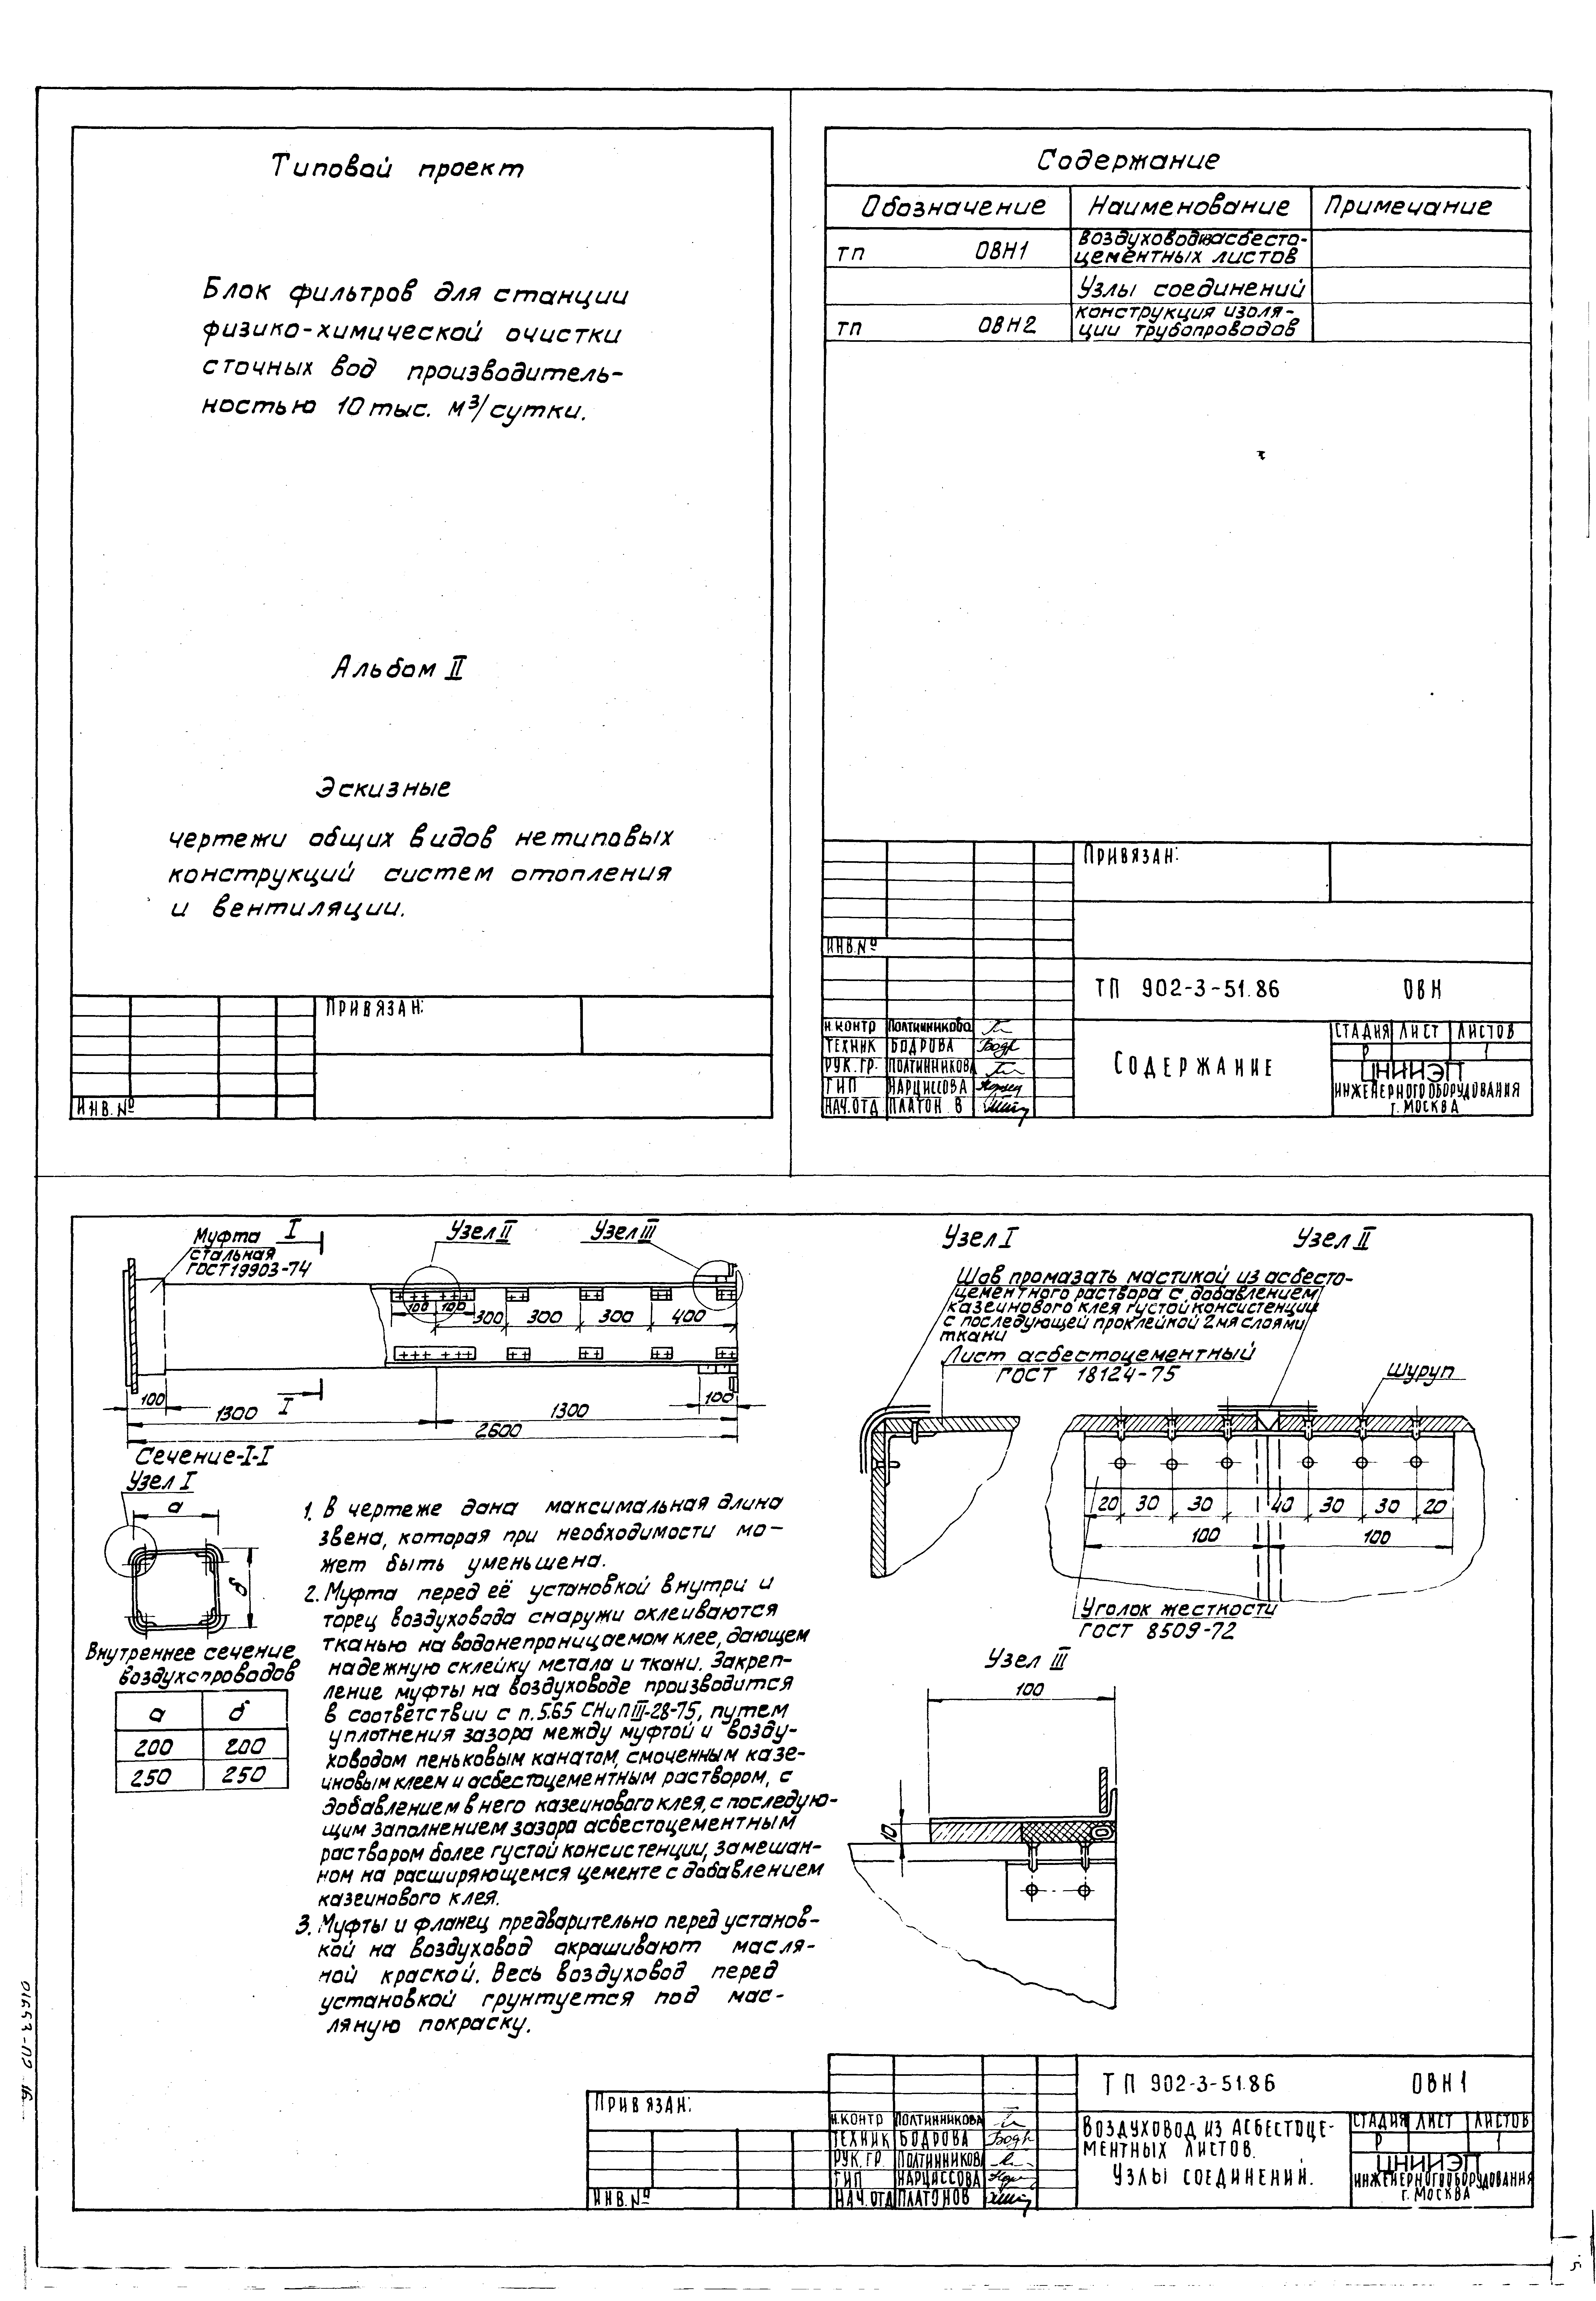 Типовой проект
Блок фильтров для станции
физико-химической очистки
сточных вод производитель-
ностью 10 тыс. м³/сутки.
Альбом II
Эскизные
чертежи общих видов нетиповых
конструкций систем отопления
и вентиляции.
Привязан:
Инв. №
Содержание
Обозначение Наименование Примечание
ТП ОВН1 Воздуховод из асбесто-
цементных листов
Узлы соединений
ТП ОВН2 Конструкция изоля-
ции трубопроводов
Привязан:
Инв. №
ТП 902-3-51.86 ОВН
Н.контр Полтинникова
Техник Бодрова
Рук. гр. Полтинникова
ГИП Нарциссова
Нач. отд Платон в
Содержание
Стадия Лист Листов
Р 1
ЦНИИЭП
инженерного оборудования
г. Москва
Муфта
стальная
ГОСТ 19903-74
I
Узел II
Узел III
100 100 300 300 300 400
100 1300 I 1300 100
2600
Сечение-I-I
Узел I
а
б
Внутреннее сечение
воздухопроводов
а б
200 200
250 250
1. В чертеже дана максимальная длина
звена, которая при необходимости мо-
жет быть уменьшена.
2. Муфта перед её установкой внутри и
торец воздуховода снаружи оклеиваются
тканью на водонепроницаемом клее, дающем
надежную склейку метала и ткани. Закреп-
ление муфты на воздуховоде производится
в соответствии с п. 5.65 СНиП III-28-75, путем
уплотнения зазора между муфтой и возду-
ховодом пеньковым канатом, смоченным казе-
иновым клеем и асбестоцементным раствором, с
добавлением в него казеинового клея, с последую-
щим заполнением зазора асбестоцементным
раствором более густой консистенции, замешан-
ном на расширяющемся цементе с добавлением
казеинового клея.
3. Муфты и фланец предварительно перед установ-
кой на воздуховод окрашивают масля-
ной краской. Весь воздуховод перед
установкой грунтуется под мас-
ляную покраску.
Узел I
Узел II
Шов промазать мастикой из асбесто-
цементного раствора с добавлением
казеинового клея густой консистенции
с последующей проклейкой 2мя слоями
ткани
Лист асбестоцементный
ГОСТ 18124-75
Шуруп
20 30 30 40 30 30 20
100 100
Уголок жесткости
ГОСТ 8509-72
Узел III
100
10
Привязан:
Инв. №
ТП 902-3-51.86 ОВН1
Н.контр Полтинникова
Техник Бодрова
Рук. гр. Полтинникова
ГИП Нарциссова
Нач. отд Платонов
Воздуховод из асбестоце-
ментных листов.
Узлы соединений.
Стадия Лист Листов
Р 1
ЦНИИЭП
инженерного оборудования
г. Москва
5